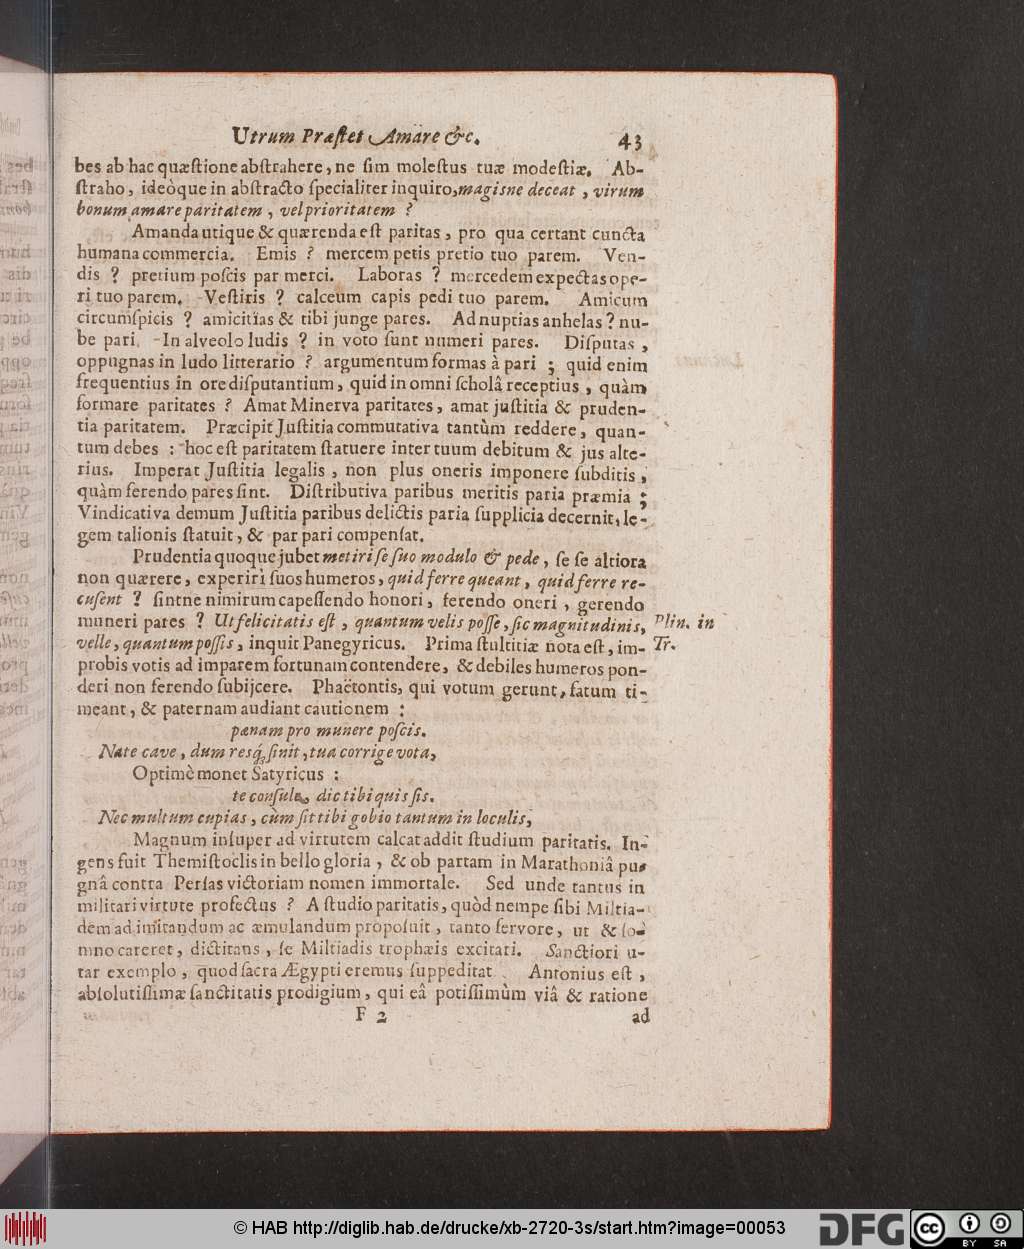 Utrum Præstet Amare &c. 43
bes ab hac quæstione abstrahere, ne sim molestus tuæ modestiæ. Ab-
straho, ideòque in abstracto specialiter inquiro, magisne deceat, virum
bonum amare paritatem, vel prioritatem ?
Amanda utique & quærenda est paritas, pro qua certant cuncta
humana commercia. Emis ? mercem petis pretio tuo parem. Ven-
dis ? pretium poscis par merci. Laboras ? mercedem expectas ope-
ri tuo parem. Vestiris ? calceum capis pedi tuo parem. Amicum
circumspicis ? amicitias & tibi junge pares. Ad nuptias anhelas ? nu-
be pari. In alveolo ludis ? in voto sunt numeri pares. Disputas,
oppugnas in ludo litterario ? argumentum formas à pari ; quid enim
frequentius in ore disputantium, quid in omni scholâ receptius, quàm
formare paritates ? Amat Minerva paritates, amat justitia & pruden-
tia paritatem. Præcipit Justitia commutativa tantùm reddere, quan-
tum debes : hoc est paritatem statuere inter tuum debitum & jus alte-
rius. Imperat Justitia legalis, non plus oneris imponere subditis,
quàm ferendo pares sint. Distributiva paribus meritis paria præmia ;
Vindicativa demum Justitia paribus delictis paria supplicia decernit, le-
gem talionis statuit, & par pari compensat.
Prudentia quoque jubet metiri se suo modulo & pede, se se altiora
non quærere, experiri suos humeros, quid ferre queant, quid ferre re-
cusent ? sintne nimirum capessendo honori, ferendo oneri, gerendo
muneri pares ? Ut felicitatis est, quantum velis posse, sic magnitudinis, Plin. in
velle, quantum possis, inquit Panegyricus. Prima stultitiæ nota est, im- Tr.
probis votis ad imparem fortunam contendere, & debiles humeros pon-
deri non ferendo subijcere. Phaëtontis, qui votum gerunt, fatum ti-
meant, & paternam audiant cautionem :
pænam pro munere poscis.
Nate cave, dum resq; sinit, tua corrige vota,
Optimè monet Satyricus :
te consule, dic tibi quis sis.
Nec multum cupias, cùm sit tibi gobio tantum in loculis,
Magnum insuper ad virtutem calcat addit studium paritatis. In-
gens fuit Themistoclis in bello gloria, & ob partam in Marathoniâ pu-
gnâ contra Persas victoriam nomen immortale. Sed unde tantus in
militari virtute profectus ? A studio paritatis, quòd nempe sibi Miltia-
dem ad imitandum ac æmulandum proposuit, tanto fervore, ut & so-
mno careret, dictitans, se Miltiadis trophæis excitari. Sanctiori u-
tar exemplo, quod sacra Ægypti eremus suppeditat. Antonius est,
absolutissimæ sanctitatis prodigium, qui eâ potissimùm viâ & ratione
F 2 ad
© HAB http://diglib.hab.de/drucke/xb-2720-3s/start.htm?image=00053
DFG cc BY SA